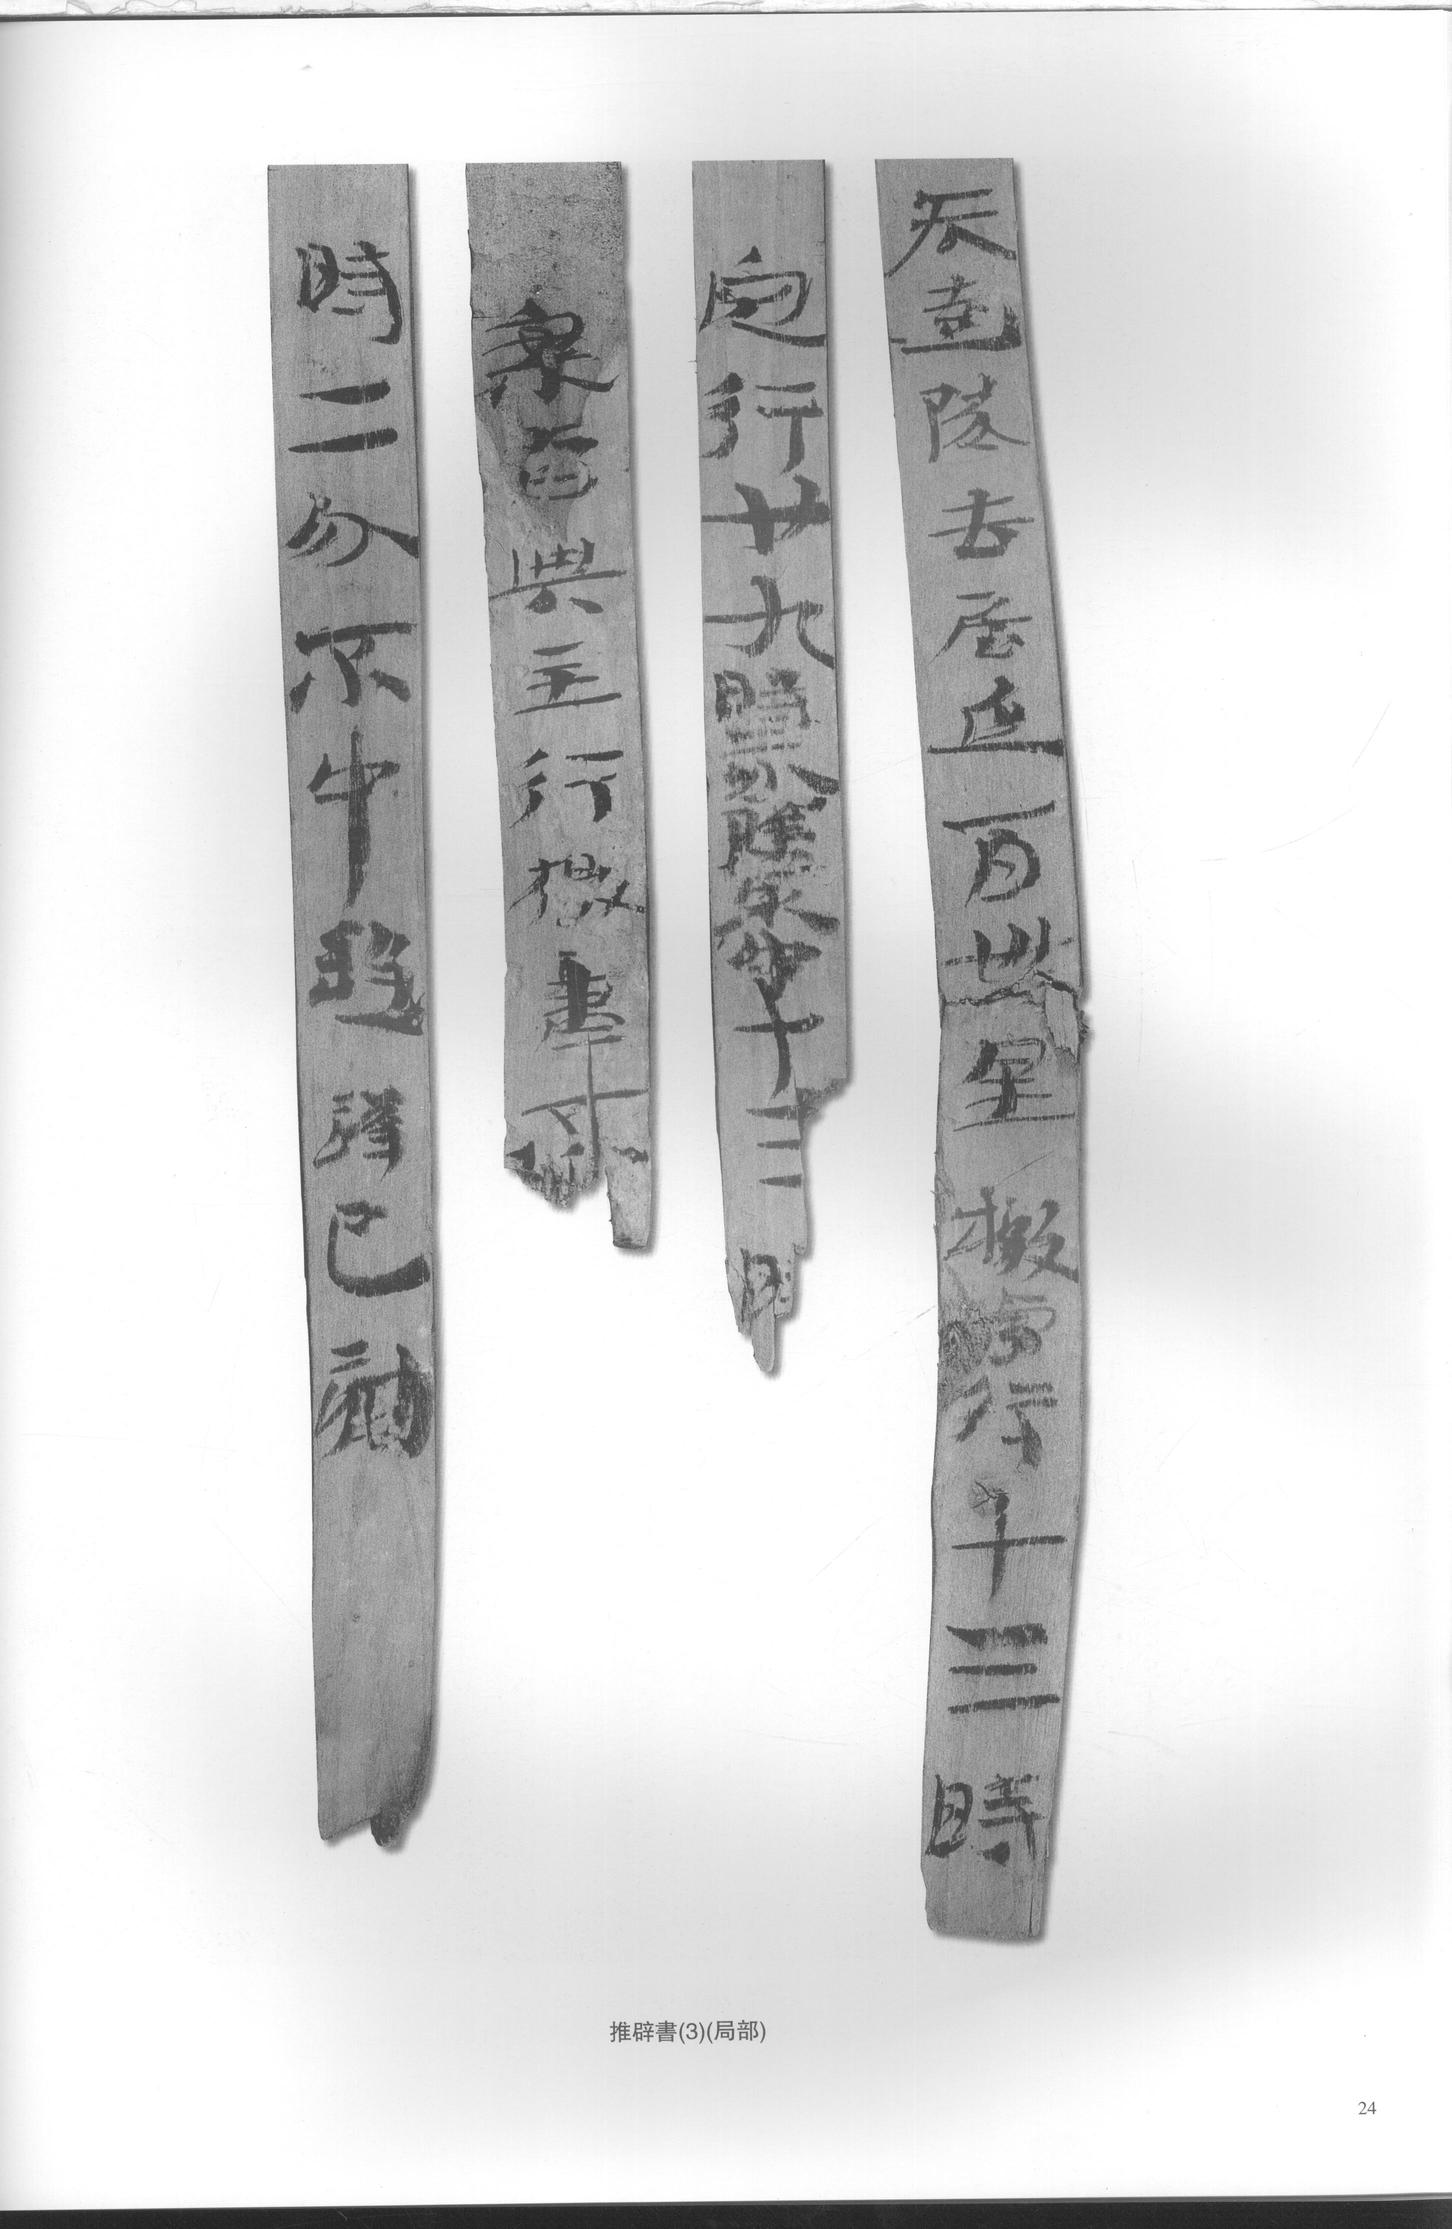 吞遠隧去居延百卅里檄當行十三時
定行廿九時二分除界中十三時
案習典主行檄書不
時二分不中程謹已劾
推辟書(3)(局部)
24